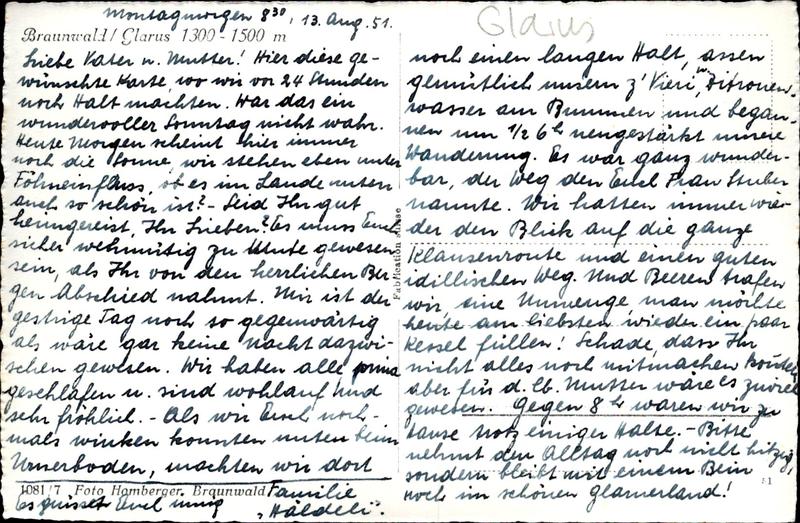 Montagmorgen 8³⁰, 13. Aug. 51.
Glarus
Braunwald / Glarus 1300 - 1500 m
Liebe Vater u. Mutter! Hier diese ge-
wünschte Karte, wo wir vor 24 Stunden
noch Halt machten. War das ein
wundervoller Sonntag nicht wahr.
Heute Morgen scheint hier immer
noch die Sonne, wir stehen eben unter
Föhneinfluss, ob es im Lande unten
auch so schön ist? - Seid Ihr gut
heimgereist, Ihr Lieben? Es muss Euch
sicher wehmütig zu Mute gewesen
sein, als Ihr von den herrlichen Ber-
gen Abschied nahmt. Mir ist der
gestrige Tag noch so gegenwärtig
als wäre gar keine Nacht dazwi-
schen gewesen. Wir haben alle prima
geschlafen u. sind wohlauf und
sehr fröhlich. - Als wir Euch noch-
mals winken konnten unten beim
Urnerboden, machten wir dort
1081/7 Foto Homberger, Braunwald
Es grüsst Euch innig Familie
"Häldeli".
Fabrication Suisse
noch einen langen Halt, assen
gemütlich unsern z'Vieri, Zitronen-
wasser am Brunnen und began-
nen um ½ 6 h neugestärkt unsere
Wanderung. Es war ganz wunder-
bar, der Weg den Euch Frau Stuber
nannte. Wir hatten immer wie-
der den Blick auf die ganze
Klausenroute und einen guten
idillischen Weg. Und Beeren trafen
wir, eine Unmenge man möchte
heute am liebsten wieder ein paar
Kessel füllen! Schade, dass Ihr
nicht alles noch mitmachen konntet
aber für d. lb. Mutter wäre es zuviel
gewesen. Gegen 8 h waren wir zu
hause trotz einiger Halte. - Bitte
nehmt den Alltag noch nicht hitzig,
sondern bleibt mit einem Bein
noch im schönen Glarnerland!